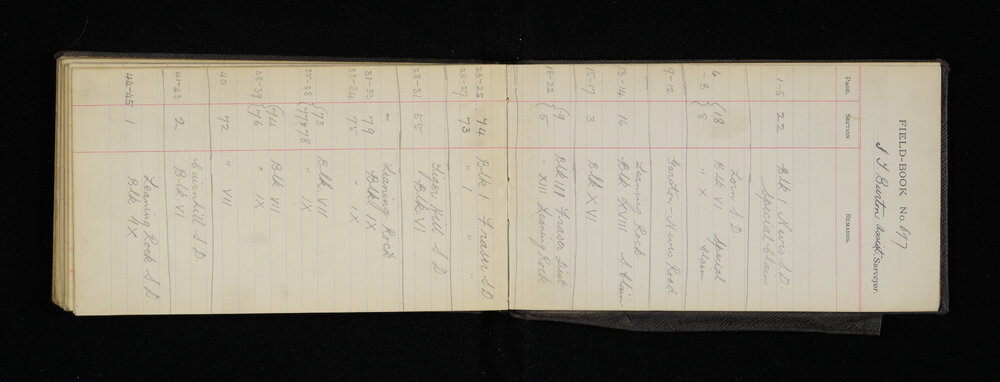 FIELD-BOOK No. 697
S T Burton Assist. Surveyor.
PAGE. SECTION REMARKS.
1-5 22 Blk 1 Nevis S.D.
Special Claim
Lorn S.D.
6-8 {18 Blk VI Special
8 " X Claim
9-12 Gorston-Nevis Road
Leaning Rock
13-14 16 Blk XVIII S Claim
15-17 3 Blk XVI
18-22 {9 Blk III Fraser Dist
5 " XIII Leaning Rock
23-25 74 Blk 1 Fraser S D
25-27 73 " 1 " "
Tiger Hill S D
28-31 55 Blk VI
Leaning Rock
31-33 79 Blk IX
33-34 75 " IX
35-38 {73 Blk VII
77&78 " IX
38-39 {74 Blk VII
76 " IX
40 72 " VIII
Cairnhill S D
41-43 2 Blk VI
Leaning Rock S D.
44-45 1 Blk IX